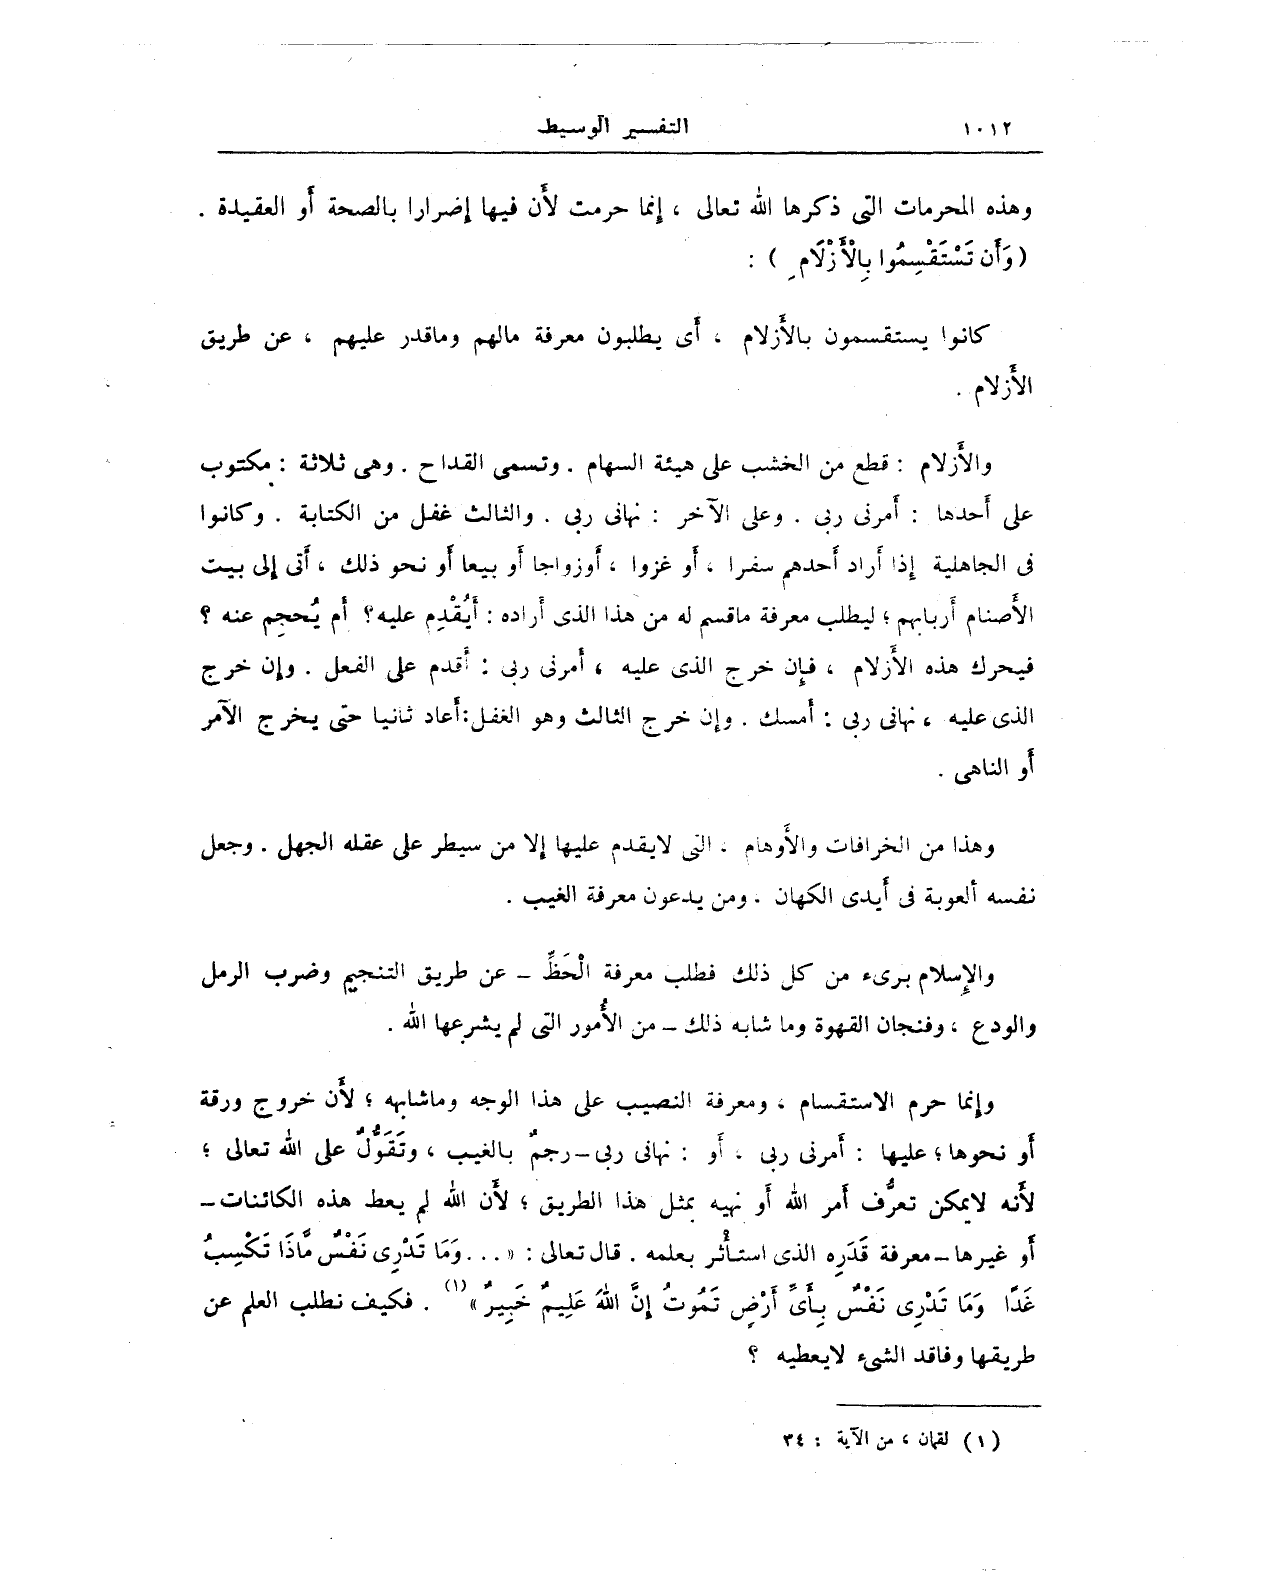 ١٠١٢
التفسير الوسيط
وهذه المحرمات التى ذكرها الله تعالى ، إنما حرمت لأن فيها إضرارا بالصحة أو العقيدة .
( وَأَن تَسْتَقْسِمُوا بِالْأَزْلَامِ ) :
كانوا يستقسمون بالأَزلام ، أَى يطلبون معرفة مالهم وماقدر عليهم ، عن طريق
الأَزلام .
والأَزلام : قطع من الخشب على هيئة السهام . وتسمى القداح . وهى ثلاثة : مكتوب
على أَحدها : أَمرنى ربى . وعلى الآخر : نهانى ربى . والثالث غفل من الكتابة . وكانوا
فى الجاهلية إذا أَراد أَحدهم سفرا ، أَو غزوا ، أَوزواجا أَو بيعا أَو نحو ذلك ، أَتى إلى بيت
الأَصنام أَربابهم ؛ ليطلب معرفة ماقسم له من هذا الذى أَراده : أَيُقْدِم عليه ؟ أَم يُحجِم عنه ؟
فيحرك هذه الأَزلام ، فإن خرج الذى عليه ، أَمرنى ربى : أَقدم على الفعل . وإن خرج
الذى عليه ، نهانى ربى : أَمسك . وإن خرج الثالث وهو الغفل : أَعاد ثانيا حتى يخرج الآمر
أَو الناهى .
وهذا من الخرافات والأَوهام ، التى لايقدم عليها إلا من سيطر على عقله الجهل . وجعل
نفسه أَلعوبة فى أَيدى الكهان . ومن يدعون معرفة الغيب .
والإسلام برىء من كل ذلك فطلب معرفة الْحَظِّ – عن طريق التنجيم وضرب الرمل
والودع ، وفنجان القهوة وما شابه ذلك – من الأُمور التى لم يشرعها الله .
وإنما حرم الاستقسام ، ومعرفة النصيب على هذا الوجه وماشابهه ؛ لأَن خروج ورقة
أَو نحوها ؛ عليها : أَمرنى ربى ، أَو : نهانى ربى – رجمٌ بالغيب ، وتَقَوُّلٌ على الله تعالى ؛
لأَنه لايمكن تعرُّف أَمر الله أَو نهيه بمثل هذا الطريق ؛ لأَن الله لم يعط هذه الكائنات –
أَو غيرها – معرفة قَدَرِه الذى استأْثر بعلمه . قال تعالى : « ... وَمَا تَدْرِى نَفْسٌ مَّاذَا تَكْسِبُ
غَدًا وَمَا تَدْرِى نَفْسٌ بِأَىِّ أَرْضٍ تَمُوتُ إِنَّ اللهَ عَلِيمٌ خَبِيرٌ » (١) . فكيف نطلب العلم عن
طريقها وفاقد الشىء لايعطيه ؟
(١) لقمان ، من الآية : ٣٤